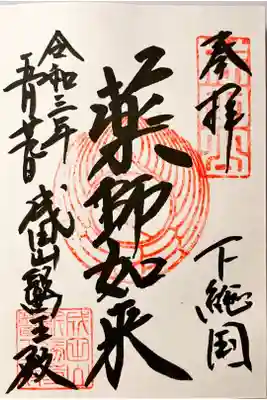 奉拝
下総国
薬師如来
令和三年
五月廿日
成田山醫王殿